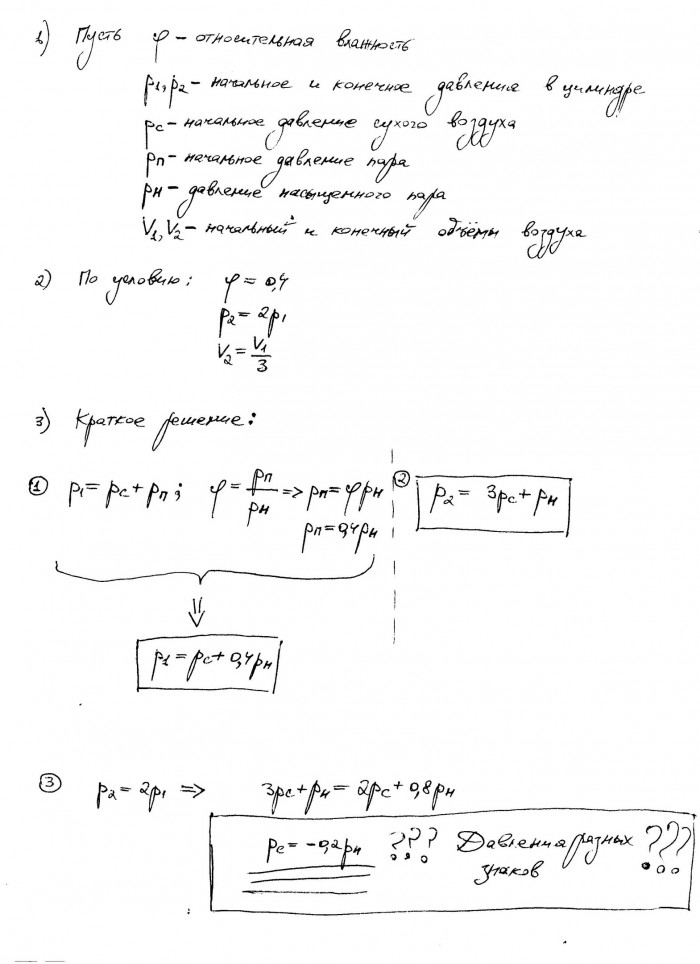 1) Пусть φ – относительная влажность
p1, p2 – начальное и конечное давления в цилиндре
pс – начальное давление сухого воздуха
pп – начальное давление пара
pн – давление насыщенного пара
V1, V2 – начальный и конечный объёмы воздуха
2) По условию: φ = 0,4
p2 = 2p1
V2 = V1/3
3) Краткое решение:
① p1 = pс + pп; φ = pп/pн => pп = φpн
pп = 0,4pн
② p2 = 3pс + pн
⇓
p1 = pс + 0,4pн
③ p2 = 2p1 => 3pс + pн = 2pс + 0,8pн
pс = -0,2pн ??? Давления разных ???
знаков